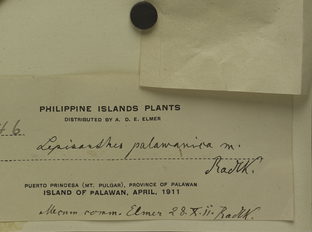 PHILIPPINE ISLANDS PLANTS
DISTRIBUTED BY A. D. E. ELMER
Lepisanthes palawanica m.
Radlk.
PUERTO PRINCESA (MT. PULGAR), PROVINCE OF PALAWAN
ISLAND OF PALAWAN, APRIL, 1911
Mecum comm. Elmer 28.X.11. Radlk.